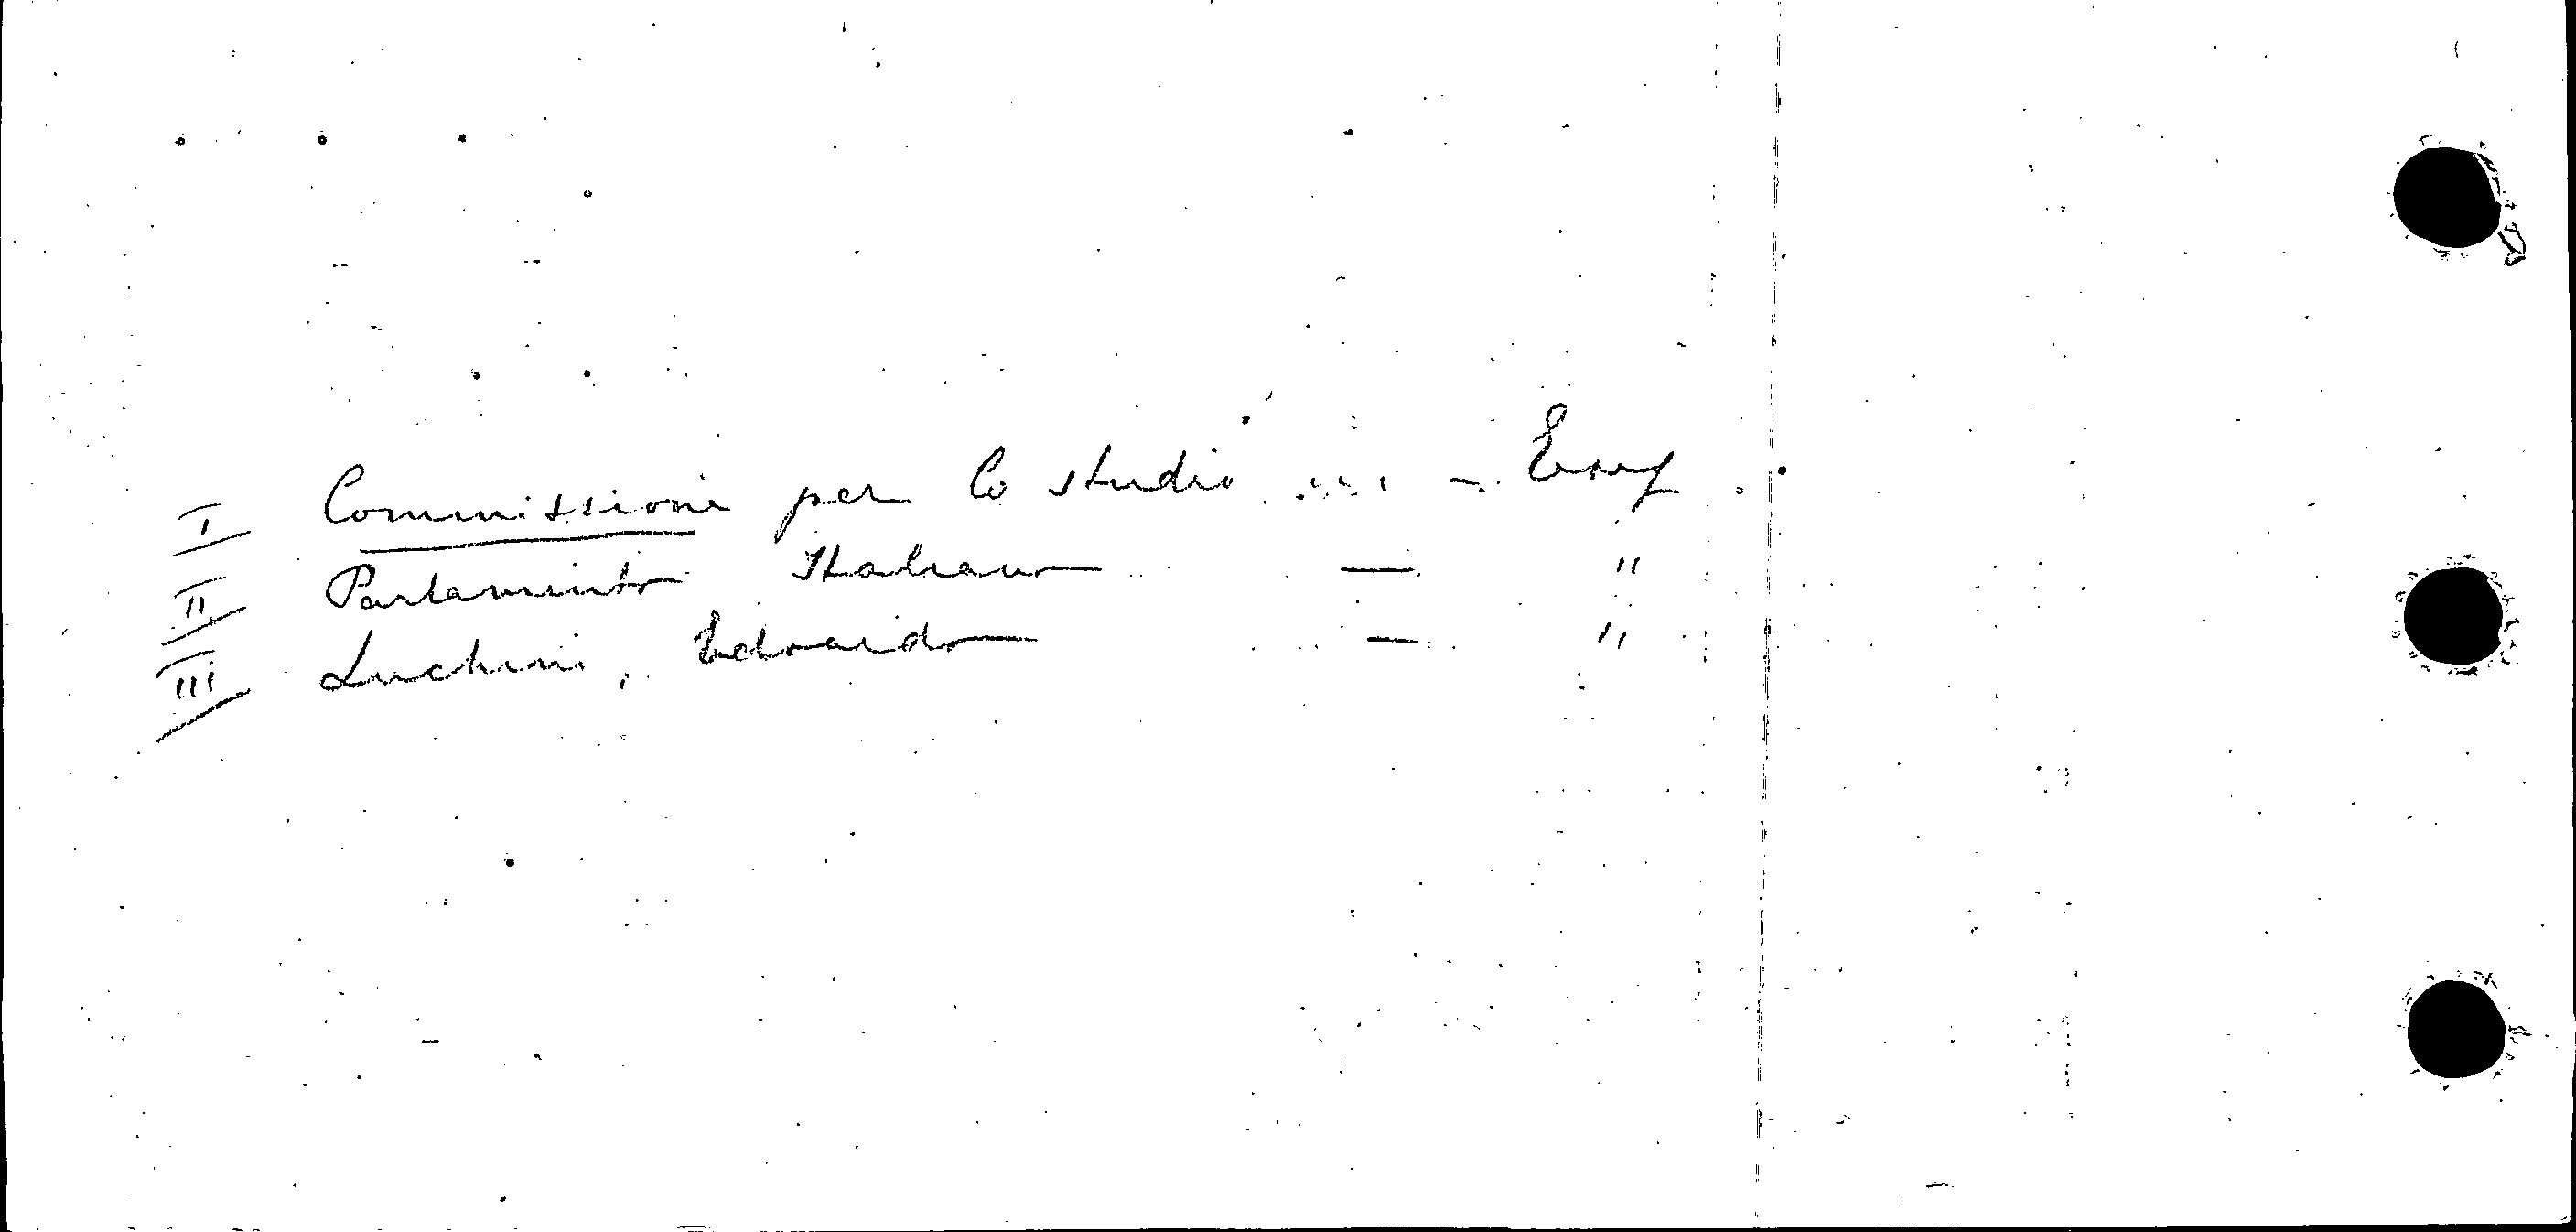 I Commissione per lo studio ... -
II Parlamento Italiano — "
III Luchini, Edoardo — "